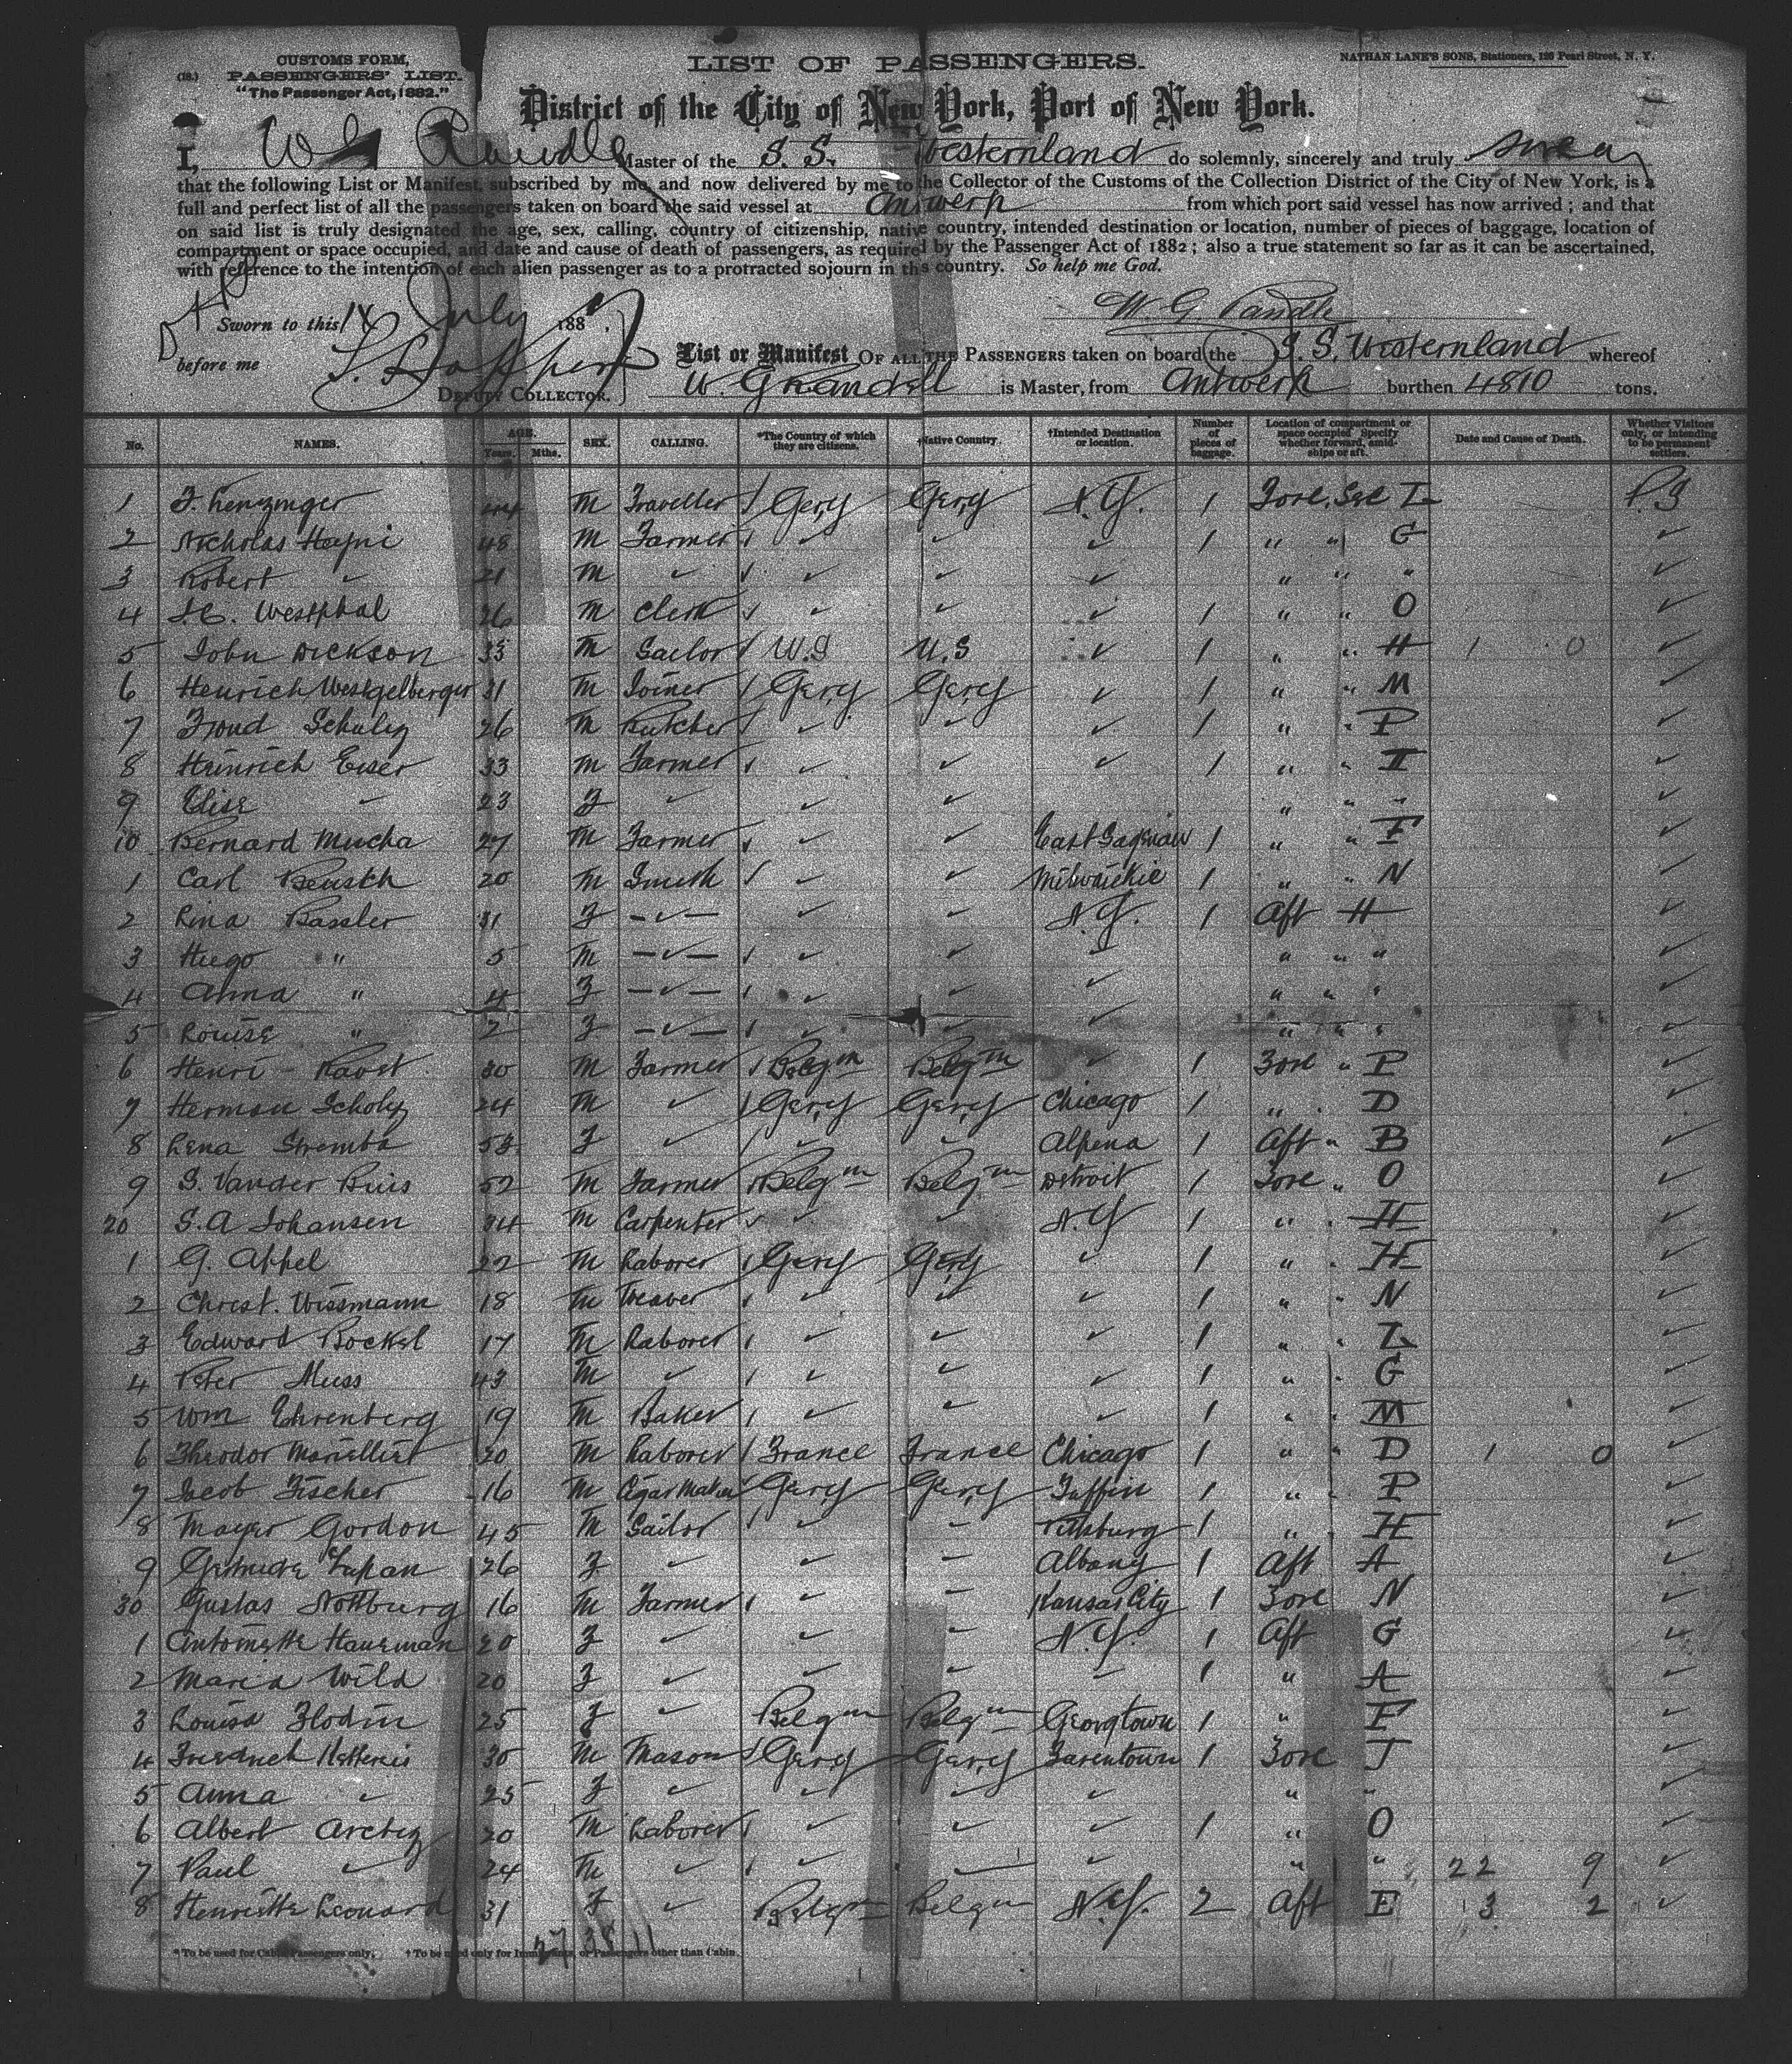 CUSTOMS FORM,
(18.) PASSENGERS' LIST.
"The Passenger Act, 1882."
LIST OF PASSENGERS.
NATHAN LANE'S SONS, Stationers, 126 Pearl Street, N. Y.
District of the City of New York, Port of New York.
I, W G Randle Master of the S. S. Westernland do solemnly, sincerely and truly swear
that the following List or Manifest, subscribed by me, and now delivered by me to the Collector of the Customs of the Collection District of the City of New York, is a
full and perfect list of all the passengers taken on board the said vessel at Antwerp from which port said vessel has now arrived ; and that
on said list is truly designated the age, sex, calling, country of citizenship, native country, intended destination or location, number of pieces of baggage, location of
compartment or space occupied, and date and cause of death of passengers, as required by the Passenger Act of 1882 ; also a true statement so far as it can be ascertained,
with reference to the intention of each alien passenger as to a protracted sojourn in this country. So help me God.
Sworn to this July 188
W G Randle
before me
DEPUTY COLLECTOR.
List or Manifest OF ALL THE PASSENGERS taken on board the S. S. Westernland whereof
W. G Randell is Master, from Antwerp burthen 4810 tons.
No. NAMES. AGE. Years. Mths. SEX. CALLING. *The Country of which they are citizens. †Native Country. †Intended Destination or location. Number of pieces of baggage. Location of compartment or space occupied Specify whether forward, amidships or aft. Date and Cause of Death. Whether Visitors only, or intending to be permanent settlers.
1 44 M Traveller Gery Gery N.Y. 1 Fore. L P.S
2 Nicholas 48 M Farmer ✓ ✓ ✓ 1 " " G ✓
3 Robert ✓ 21 M ✓ ✓ ✓ ✓ " " " ✓
4 Westphal 26 M Clerk ✓ ✓ ✓ 1 " " O ✓
5 John Dickson 33 M Sailor U.S U.S ✓ 1 " " H 1 0 ✓
6 Henrich 31 M Joiner Gery Gery ✓ 1 " " M ✓
7 26 M Butcher ✓ ✓ ✓ 1 " " P ✓
8 Heinrich Eiser 33 M Farmer ✓ ✓ ✓ 1 " " I ✓
9 Elise ✓ 23 F ✓ ✓ ✓ " " " ✓
10 Bernard Mucha 27 M Farmer ✓ ✓ East Saginaw 1 " " F ✓
1 Carl 20 M Smith ✓ ✓ Milwaukie 1 " " N ✓
2 Lina Bassler 31 F — ✓ — ✓ ✓ N.Y. 1 Aft H ✓
3 Hugo " 5 M — ✓ — ✓ ✓ ✓ " " " ✓
4 Anna " 4 F — ✓ — ✓ ✓ ✓ " " " ✓
5 Louise " 2 F — ✓ — ✓ ✓ ✓ " " " ✓
6 Henri 30 M Farmer Belgm Belgm ✓ 1 Fore " P ✓
7 Herman Scholz 24 M ✓ Gery Gery Chicago 1 " " D ✓
8 Lena 53 F ✓ ✓ ✓ Alpena 1 Aft " B ✓
9 Vander 52 M Farmer Belgm Belgm Detroit 1 Fore " O ✓
20 S. A Johansen 34 M Carpenter ✓ ✓ N.Y 1 " " H ✓
1 G. Appel 22 M Laborer Gery Gery ✓ 1 " " H ✓
2 Christ. Wissmann 18 M Weaver ✓ ✓ ✓ 1 " " N ✓
3 Edward Bockel 17 M Laborer ✓ ✓ ✓ 1 " " L ✓
4 Peter Muss 43 M ✓ ✓ ✓ ✓ 1 " " G ✓
5 Wm Ehrenberg 19 M Baker ✓ ✓ ✓ 1 " " M ✓
6 Theodor 20 M Laborer France France Chicago 1 " " D 1 0 ✓
7 Jacob Fischer 16 M Cigar Maker Gery Gery 1 " " P ✓
8 Mayer Gordon 45 M Sailor ✓ ✓ Pittsburg 1 " " H ✓
9 Gertrude 26 F ✓ ✓ ✓ Albany 1 Aft A ✓
30 Gustav Nottburg 16 M Farmer ✓ ✓ Kansas City 1 Fore N ✓
1 Antoinette Hausman 20 F ✓ ✓ ✓ N.Y. 1 Aft G ✓
2 Maria Wild 20 F ✓ ✓ ✓ ✓ 1 " A ✓
3 Louisa Flodin 25 F ✓ Belgm Belgm Georgtown 1 " F ✓
4 Friedrich 30 M Mason Gery Gery Tarentown 1 Fore J ✓
5 Anna ✓ 25 F ✓ ✓ ✓ ✓ " " ✓
6 Albert 20 M Laborer ✓ ✓ ✓ 1 " O ✓
7 Paul ✓ 24 M ✓ ✓ ✓ ✓ " " 22 9 ✓
8 Henriette Leonard 31 F ✓ Belgm Belgm N.Y. 2 Aft E 3 2 ✓
* To be used for Cabin Passengers only. † To be used only for Immigrants, or Passengers other than Cabin.